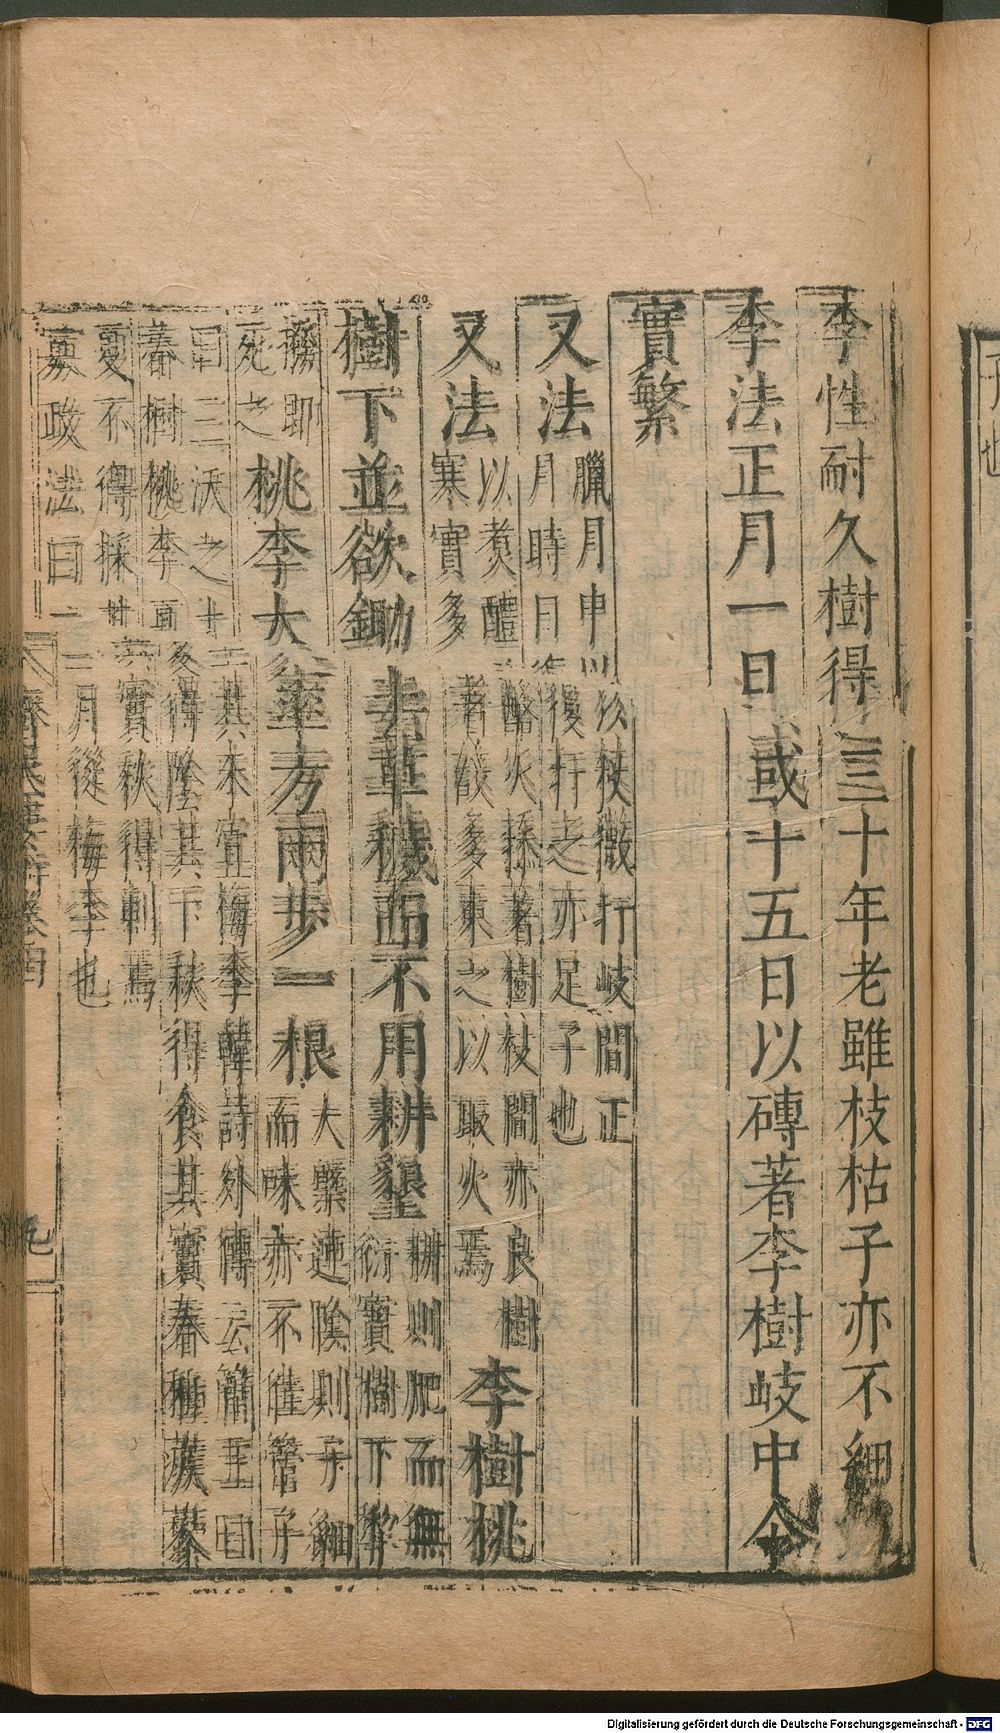 子也
李性耐久樹得三十年老雖枝枯子亦不細
李法正月一日或十五日以磚著李樹岐中令
實繁
又法
臘月中以杖微打岐間正
月時日復打之亦足子也
又法
以煮醴酪火㮇著樹枝間亦良樹
寒實多者故多束之以取火焉
李樹桃
樹下並欲鋤去草穢而不用耕墾
耕則肥而無
衍實樹下犂
撥即
死之
桃李大率方兩步一根
大檗連陰則子細
而味亦不佳管子
曰三沃之土其木宜梅李韓詩外傳云簡王曰
春樹桃李夏得陰其下秋得食其實春種蒺藜
夏不得採其實秋得刺焉
家政法曰二月徙梅李也
齊民要術卷四
九
Digitalisierung gefördert durch die Deutsche Forschungsgemeinschaft - DFG